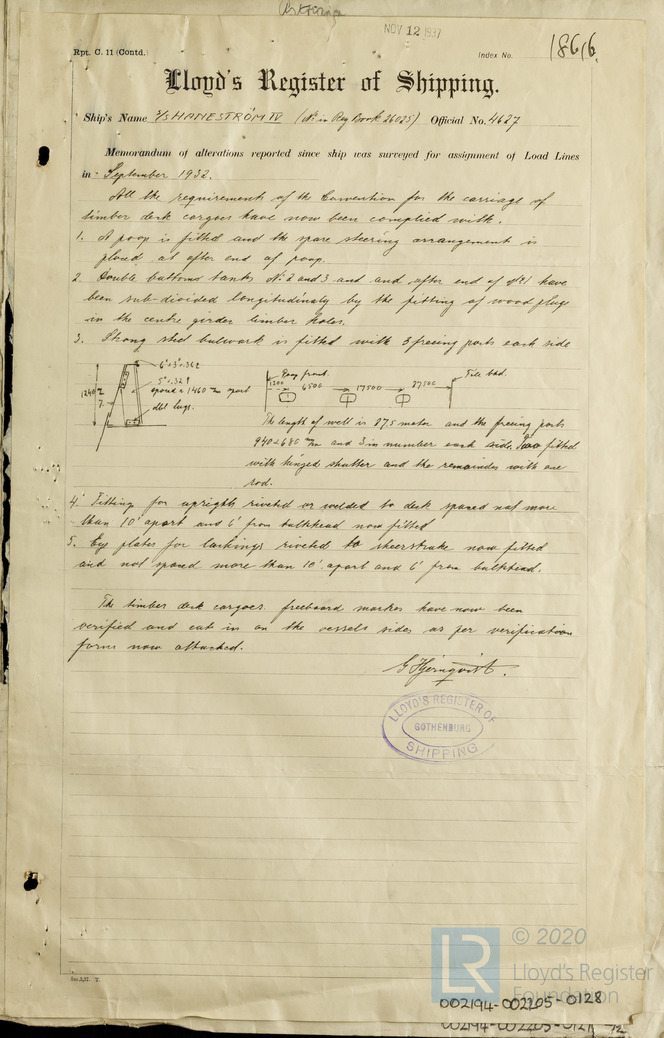 NOV 12 1937
Rpt. C. 11 (Contd.)
Index No. 18616.
Lloyd's Register of Shipping.
Ship's Name S/S HANESTRÖM IV (No in Reg Book 26025) Official No. 4627
Memorandum of alterations reported since ship was surveyed for assignment of Load Lines
in - September 1932.
All the requirement of the Convention for the carriage of
timber deck cargoes have now been complied with.
1. A poop is fitted and the spare steering arrangement is
placed at after end of poop.
2. Double bottoms tanks No 2 and 3 and and after end of No 1 have
been sub-divided longitudinaly by the fitting of wood plugs
in the centre girder limber holes.
3. Strong steel bulwork is fitted with 3 freeing ports each side
1240
spaced 1460 m/m apart
dbl lugs.
Poop front.
1200 6500 17500 27500
The length of well is 87,5 meter and the freeing ports
940 x 680 m/m and 3 in number each side. Two fitted
with hinged shutter and the remainder with one
rod.
4. Fitting for uprights riveted or welded to deck spaced not more
than 10' apart and 6' from bulkhead now fitted
5. Eye plates for lashings riveted to sheerstrake now fitted
and not spaced more than 10' apart and 6' from bulkhead.
The timber deck cargoes freeboard markes have now been
verified and cut in on the vessels sides as per verification
forms now attached.
G Hjernqvist.
LLOYD'S REGISTER OF
GOTHENBURG
SHIPPING
LR
© 2020
Lloyd's Register
Foundation
002194-002205-0128
002194-002205-0127